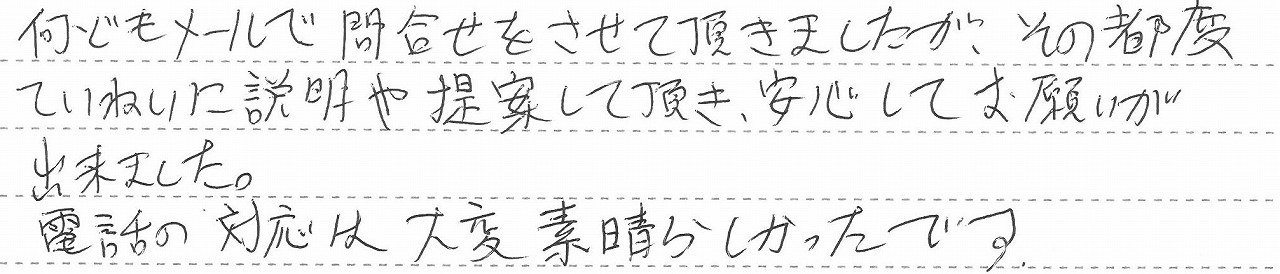 何どもメールで問合せをさせて頂きましたが、その都度
ていねいに説明や提案して頂き、安心してお願いが
出来ました。
電話の対応は大変素晴らしかったです。